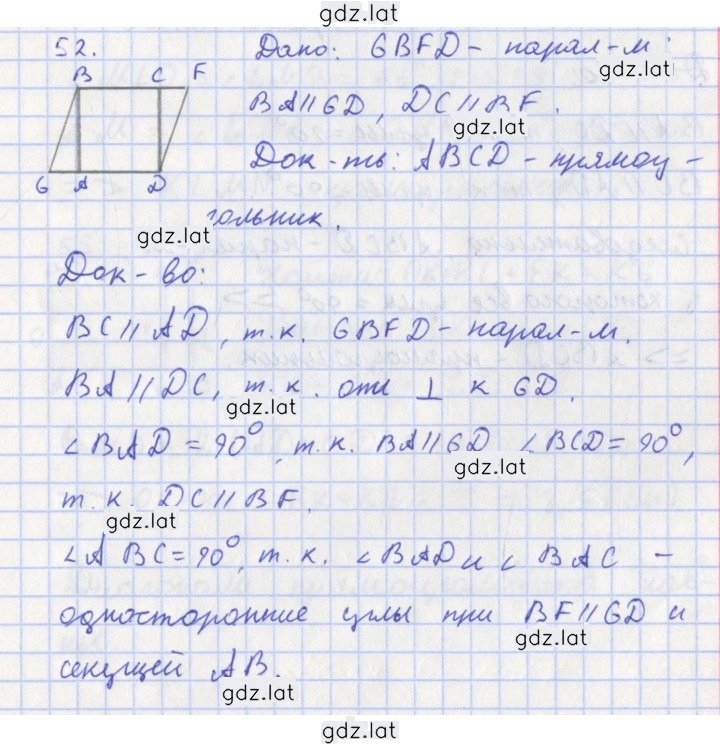 gdz.lat
52.
Дано: GBFD - парал-м.
gdz.lat
B C F
BA // GD, DC // BF.
gdz.lat
G A D
Док-ть: ABCD - прямоу-
гольник.
gdz.lat
Док-во:
BC // AD, т.к. GBFD - парал-м.
BA // DC, т.к. они ⊥ к GD.
gdz.lat
∠BAD = 90°, т.к. BA // GD ∠BCD = 90°,
gdz.lat
т.к. DC // BF.
gdz.lat
∠ABC = 90°, т.к. ∠BAD и ∠BAC -
односторонние углы при BF // GD и
gdz.lat
секущей AB.
gdz.lat
gdz.lat